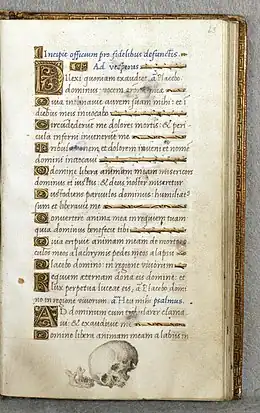 Incipit officium pro fidelibus defunctis
Ad vesperas
Dilexi quoniam exaudiet, a Placebo
dominus vocem orationis
Quia inclinavit aurem suam mihi: et i
diebus meis invocabo
Circundederunt me dolores mortis: & peri
cula inferni invenerunt me
Tribulationem et dolorem inveni et nome
domini invocavi
O domine libera animam meam misericors
dominus et iustus: & deus noster miseretur
Custodiens parvulos dominus: humiliatus
sum et liberavit me
Convertere anima mea in requiem tuam
quia dominus benefecit tibi
Quia eripuit animam meam de morte: oc
ulos meos a lachrymis pedes meos a lapsu
Placebo domino: in regione vivorum
Requiem aeternam dona eis domine: et
lux perpetua luceat eis, a Placebo domi
no in regione vivorum. a Hea mihi psalmus.
AD dominum cum tribularer clama
vi: et exaudivit me
Domine libera animam meam a labiis in